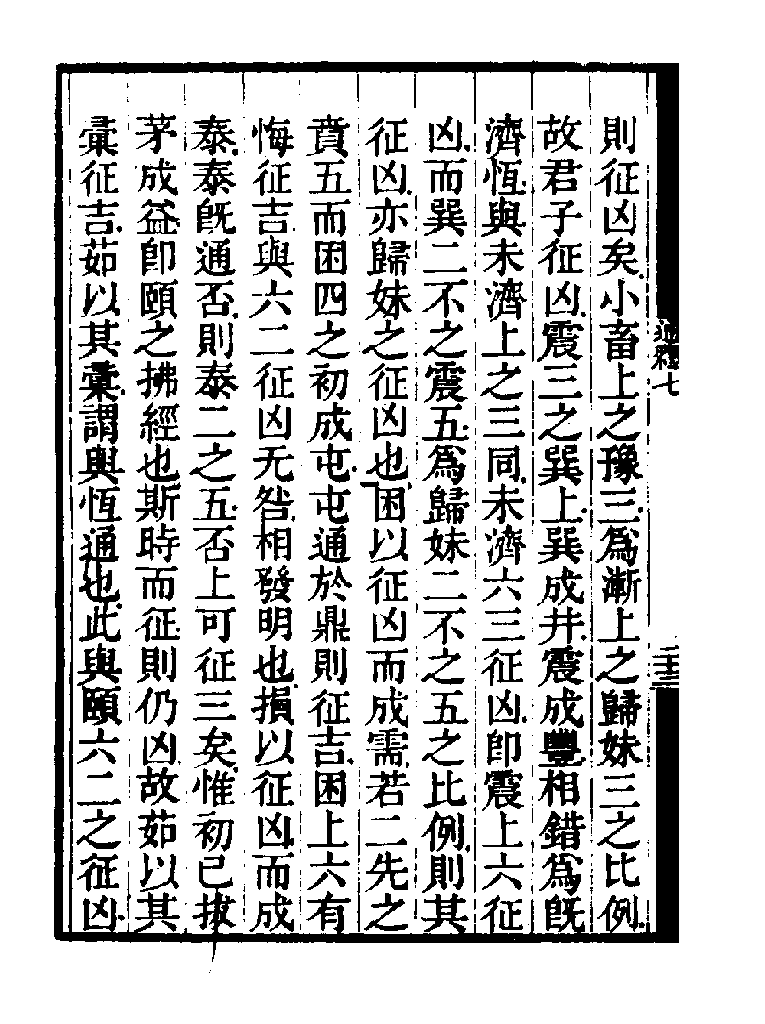 則征凶矣小畜上之豫三爲漸上之歸妹三之比例
故君子征凶震三之巽上巽成井震成豐相錯爲旣
濟恆與未濟上之三同未濟六三征凶卽震上六征
凶而巽二不之震五爲歸妹二不之五之比例則其
征凶亦歸妹之征凶也困以征凶而成需若二先之
賁五而困四之初成屯屯通於鼎則征吉困上六有
悔征吉與六二征凶无咎相發明也損以征凶而成
泰泰旣通否則泰二之五否上可征三矣惟初已拔
茅成益卽頤之拂經也斯時而征則仍凶故茹以其
彙征吉茹以其彙謂與恆通也此與頤六二之征凶
通釋七
二十三